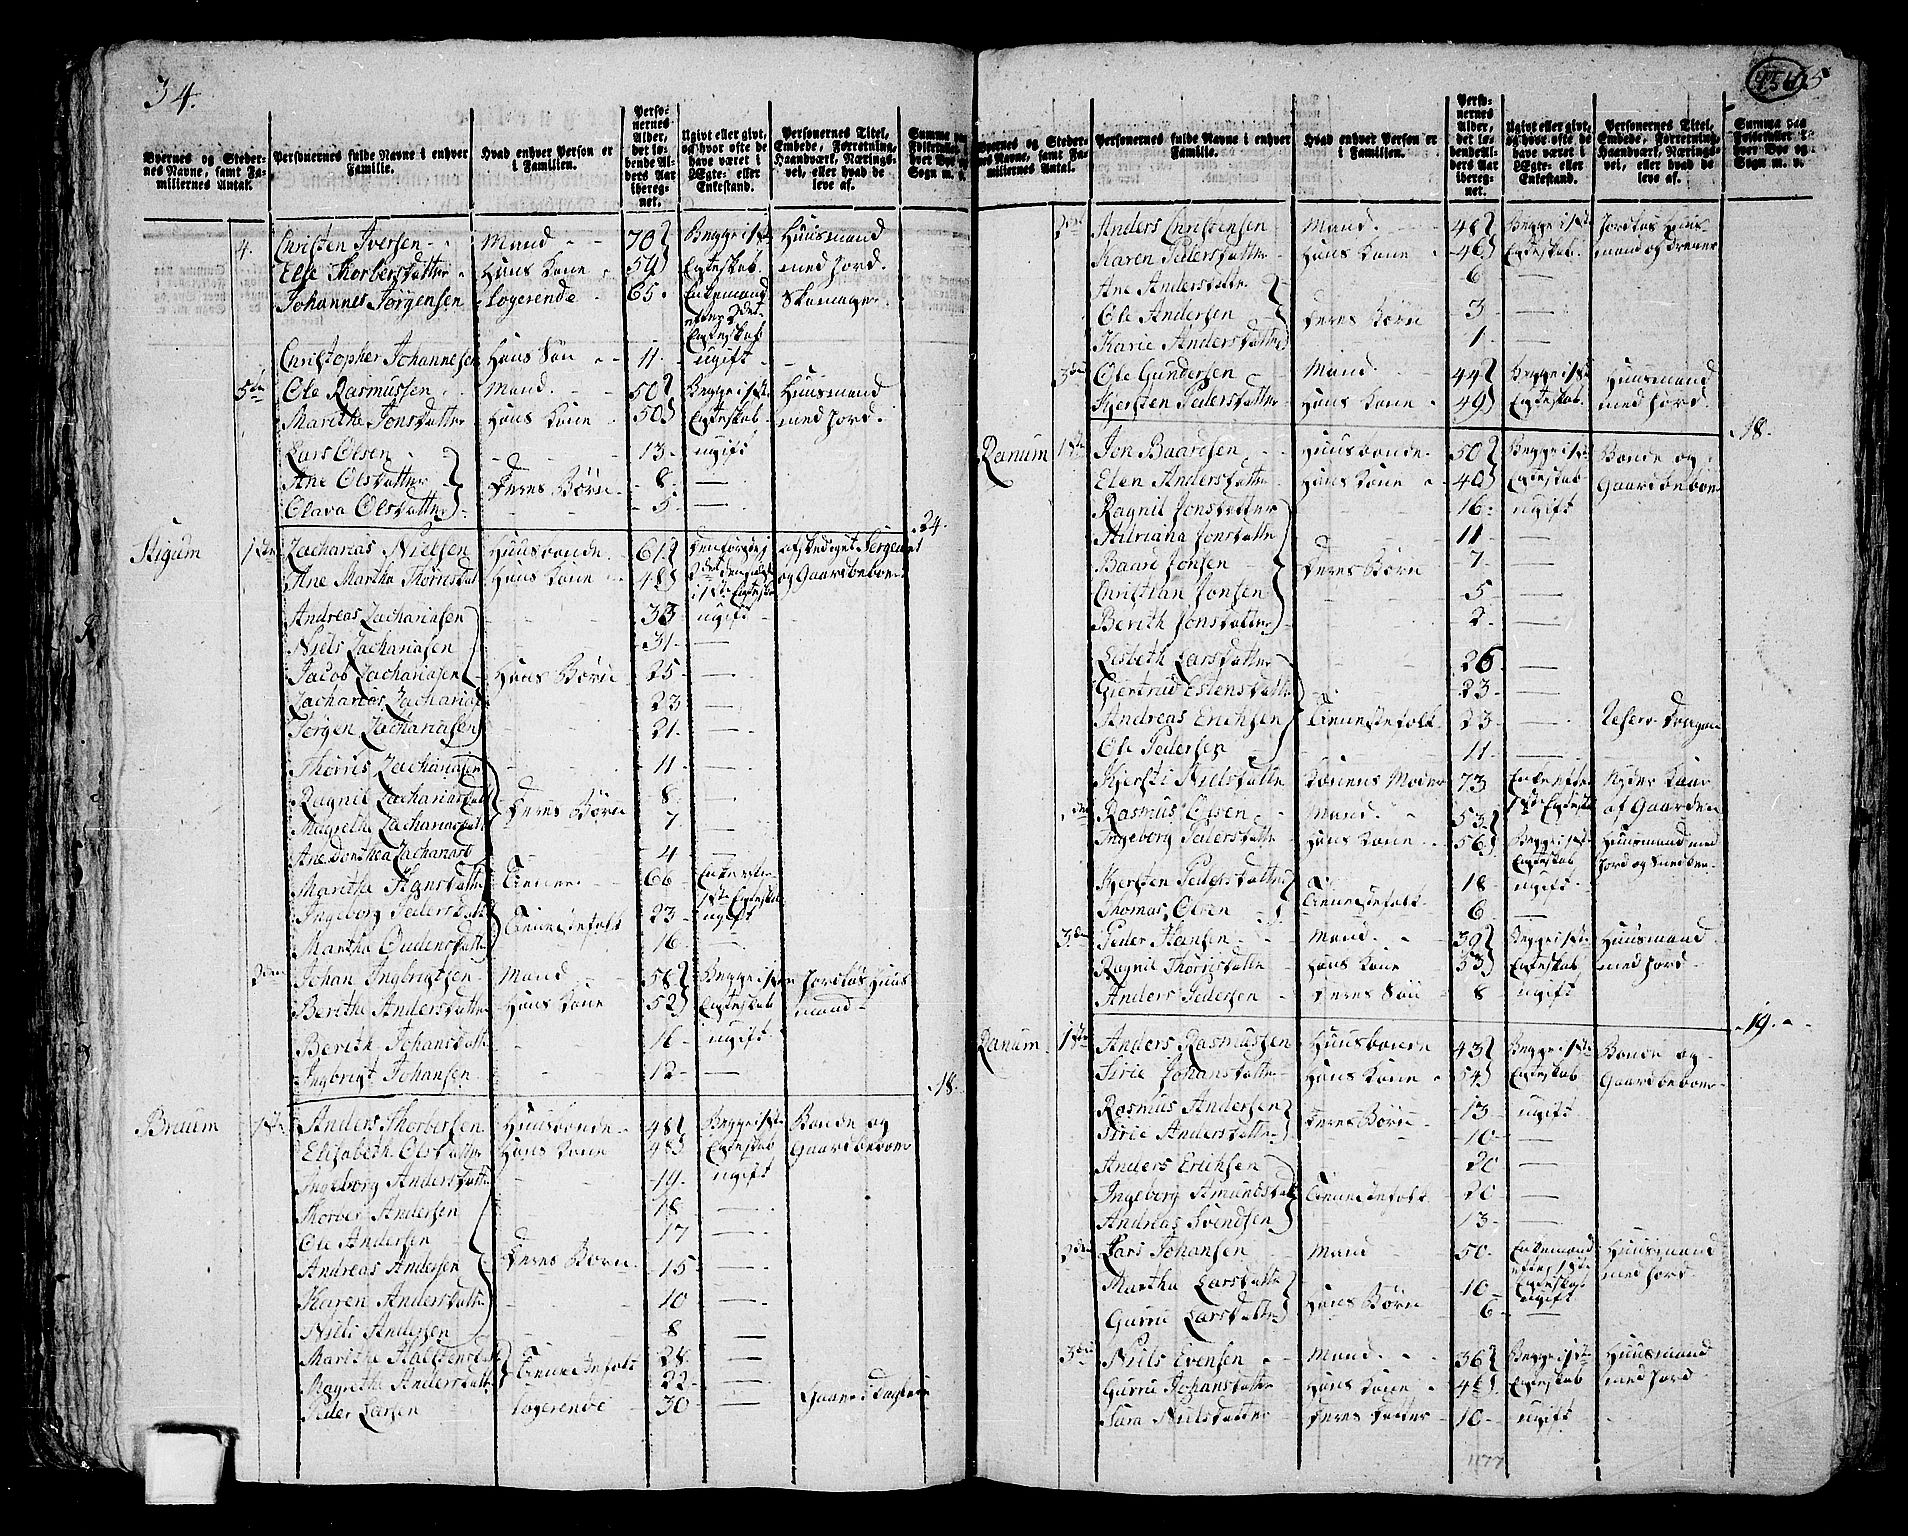 34.
Byernes og Steder-
nes Navne, samt Fa-
miliernes Antal.
Personernes fulde Navne i enhver
Familie.
Hvad enhver Person er
i Familien.
Perso-
nernes
Alder,
det lø-
bende Al-
ders Aar
iberegnet.
Ugivt eller givt,
og hvor ofte de
have været i
Ægte- eller
Enkestand.
Personernes Titel,
Embede, Forretning,
Haandværk, Nærings-
vei, eller hvad de
leve af.
4. Christen Iversen Mand 70 Begge i 1ste Huusmand
Else Thorbersdatter Hans Kone 59 Egteskab. med Jord.
Johannes Jørgensen Logerende 65. Enkemand Skomager
efter 2det
Egteskab
Christopher Johannesen Hans Søn 11. ugift
5te Ole Rasmussen Mand 50 Begge i 1ste Huusmand
Marithe Jonsdatter Hans Kone 50 Egteskab. med Jord.
Lars Olsen 13. ugift
Ane Olsdatter Deres Børn 8. —
Olava Olsdatter 5. —
24.
Stigum 1ste Zacharias Nielsen Huusbonde 61 afskediget Sergeant
Ane Martha Thorrisdat Hans Kone 48 og Gaardbeboer
Andreas Zachariasen 33 ugift
Niels Zachariasen 31. —
Jacob Zachariasen Hans Børn 25 —
Zacharias Zacharias 23 —
Jørgen Zachariasen 21. —
Thorris Zachariasen 11 —
Ragnil Zachariasdatt Deres Børn 8. —
Magrethe Zachariasdatt 7. —
Ane Dorthea Zachariasd 4 —
Marithe Hansdatter 66
1ste Egteskab
Ingeborg Pedersdatt Tienestefolk 23 ugift
Martha Oudensdatte 16 —
2den Johan Ingbrigtsen Mand 58 Begge i 1ste Jordløs Huus
Berithe Andersdatter Hans Kone 52 Egteskab mand
Berith Johansdatt 16 ugift
Ingbrigt Johansen 12 —
18.
Breum 1ste Anders Thorbersen Huusbonde 48 Begge i 1ste Bonde og
Elisabeth Olsdatter Hans Kone 48 Egteskab Gaardbeboer
Ingeborg Andersdatte 19. ugift
Thorber Andersen 18 —
Ole Andersen 17 —
Andreas Andersen Deres Børn 15 —
Karen Andersdatte 10 —
Niels Andersen 8 —
Marithe Halstensdat Tienestefolk 28. —
Magrethe Andersdatt 22 —
Peder Larsen Logerende 30 —
Byernes og Steder-
nes Navne, samt Fa-
miliernes Antal.
Personernes fulde Navne i enhver
Familie.
Hvad enhver Person er
i Familien.
Perso-
nernes
Alder,
det lø-
bende Al-
ders Aar
iberegnet.
Ugivt eller givt,
og hvor ofte de
have været i
Ægte- eller
Enkestand.
Personernes Titel,
Embede, Forretning,
Haandværk, Nærings-
vei, eller hvad de
leve af.
Summa paa
Folketallet i en-
hver Bye og
Sogn m. v.
2den Anders Christensen Mand 48 Begge i 1ste Jordløs Huus-
Karen Pedersdatter Hans Kone 46 Egteskab. mand og
Ane Andersdatter 6 —
Ole Andersen Deres Børn 3 —
Karie Andersdatter 1. —
3die Ole Gundersen Mand 44 Begge i 1ste Huusmand
Kjersten Pedersdatter Hans Kone 49 Egteskab. med Jord.
18.
Ranum 1ste Jon Baardsen Huusbonde 50 Begge i 1ste Bonde og
Elen Andersdatter Hans Kone 40 Egteskab Gaardbeboer
Ragnil Jonsdatter 16 ugift
Adriana Jonsdatte 11 —
Baard Jonsen Deres Børn 7 —
Christian Jonsen 5 —
Berith Jonsdatter 2. —
Lisbeth Larsdatter 26 —
Giertrud Estensdatte 23 —
Andreas Erichsen Tienestefolk 23 —
Ole Pedersen 11 —
Kjersti Nielsdatte Konens Moder 73 Nyder Kaar
1ste Egteskab af Gaarden
2den Rasmus Olsen Mand 53
Ingeborg Pedersdatter Hans Kone 56 Begge i 1ste Huusmand med
Egteskab
Kjersten Pedersdatter Tienestefolk 18 ugift
Thomas Olsen 6 —
3die Peder Hansen Mand 39 Begge i 1ste Huusmand
Ragnil Thorrisdatte Hans Kone 33 Egteskab med Jord
Anders Pedersen Deres Søn 8 ugift
19.
Ranum 1ste Anders Rasmussen Huusbonde 43 Begge i 1ste Bonde og
Sirie Johansdatter Hans Kone 54 Egteskab Gaardbeboer
Rasmus Andersen Deres Børn 13 ugift
Sirie Andersdatter 10 —
Anders Erichsen 20 —
Ingeborg Amundsdat Tienestefolk 20 —
Andreas Svendsen 13 —
2den Lars Johansen Mand 50. Enkemand Huusmand
efter 1ste med Jord
Egteskab
Martha Larsdatte Hans Børn 10 ugift
Gurru Larsdatter 6 —
3die Niels Evensen Mand 36 Begge i 1ste Huusmand
Gurru Johansdatte Hans Kone Egteskab med Jord
Sara Nielsdatter Deres Datter 10 ugift
1177